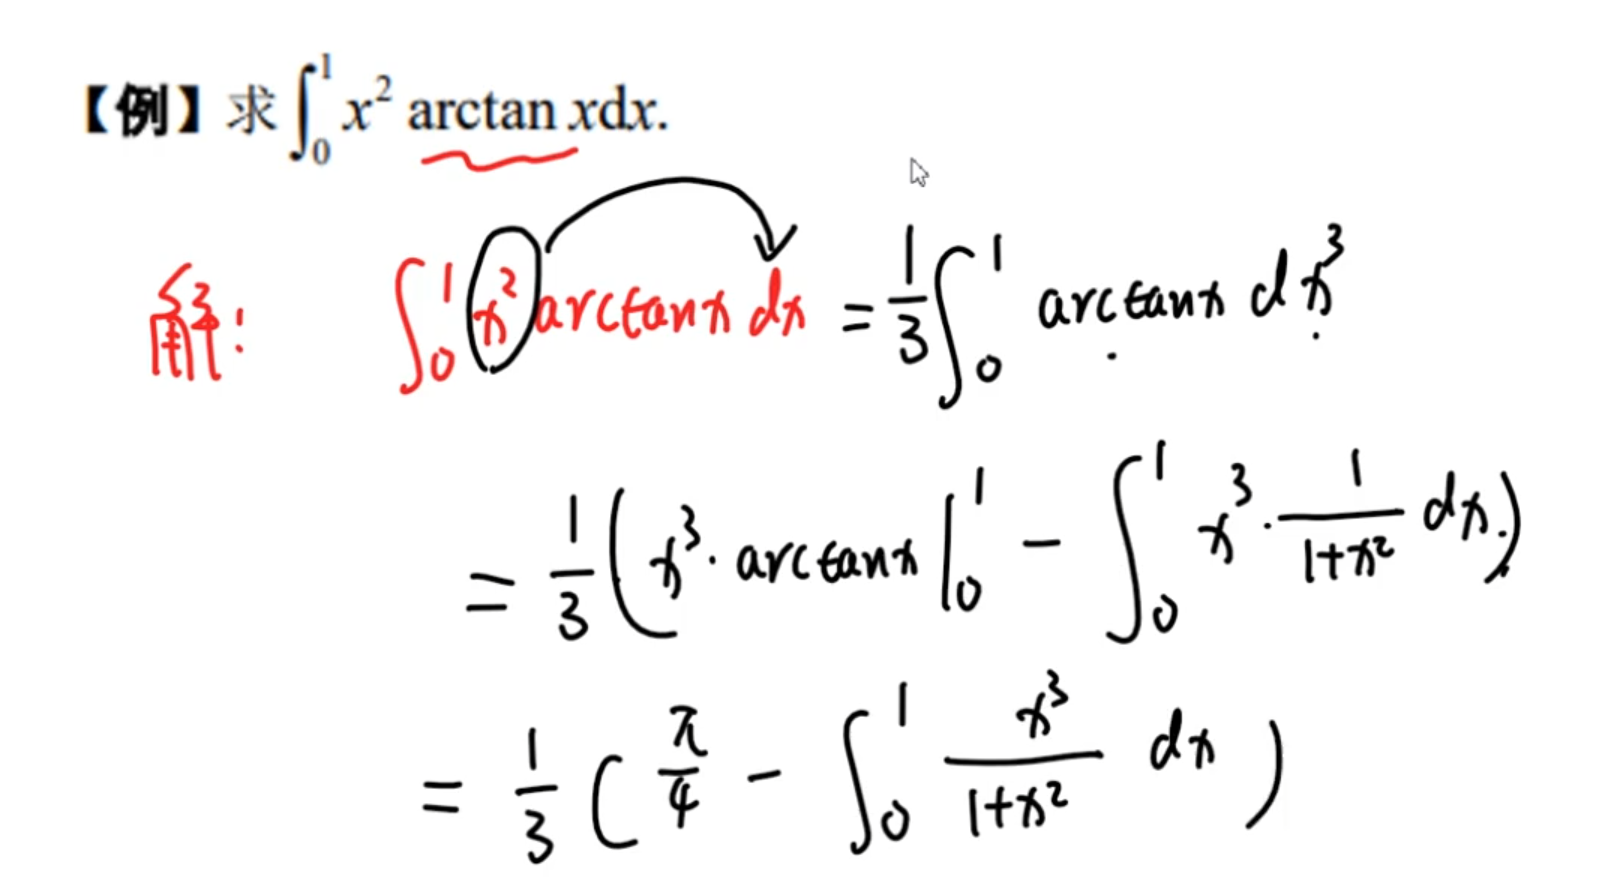 【例】求∫₀¹ x² arctan xdx.
解: ∫₀¹ x² arctanx dx = 1/3 ∫₀¹ arctanx dx³
= 1/3 (x³· arctanx |₀¹ − ∫₀¹ x³· 1/(1+x²) dx.)
= 1/3 (π/4 − ∫₀¹ x³/(1+x²) dx)